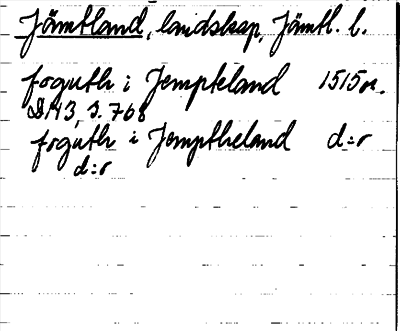 Jämtland, landskap, Jämtl. l.
foguth i Jempteland 1515 or.
S. 768
foguth i Jemptheland d:o
d:o